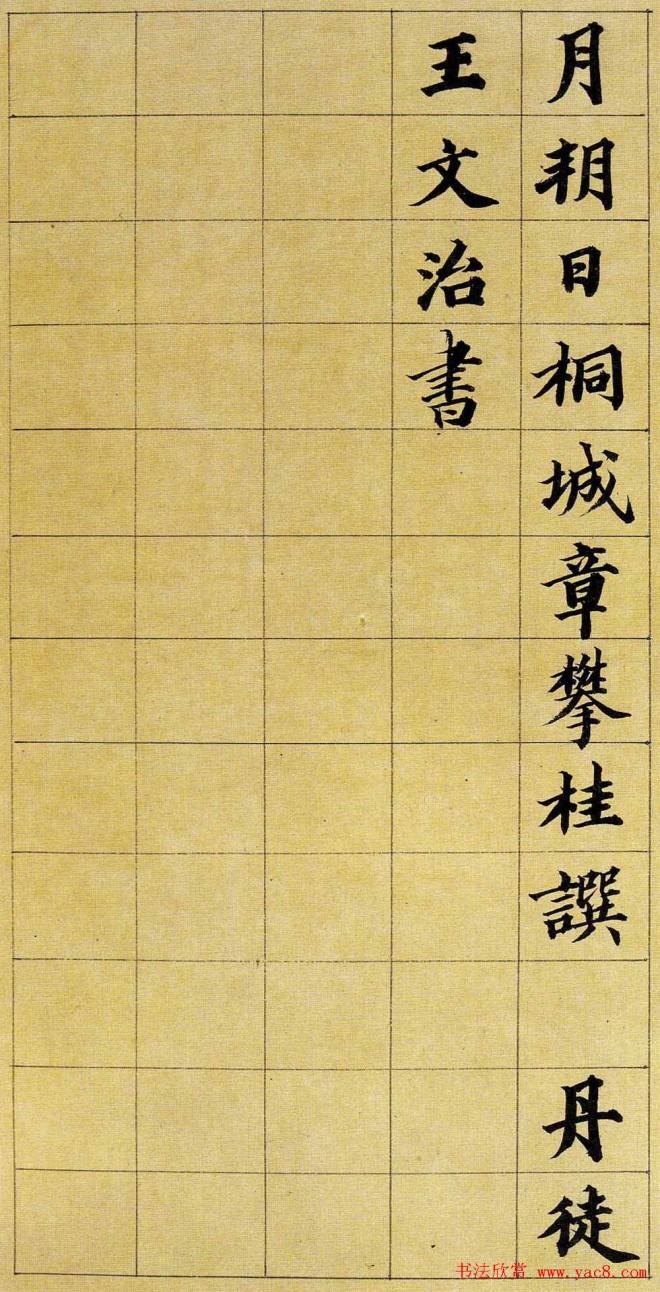 月朔日桐城章攀桂譔 丹徒
王文治書
书法欣赏 www.yac8.com